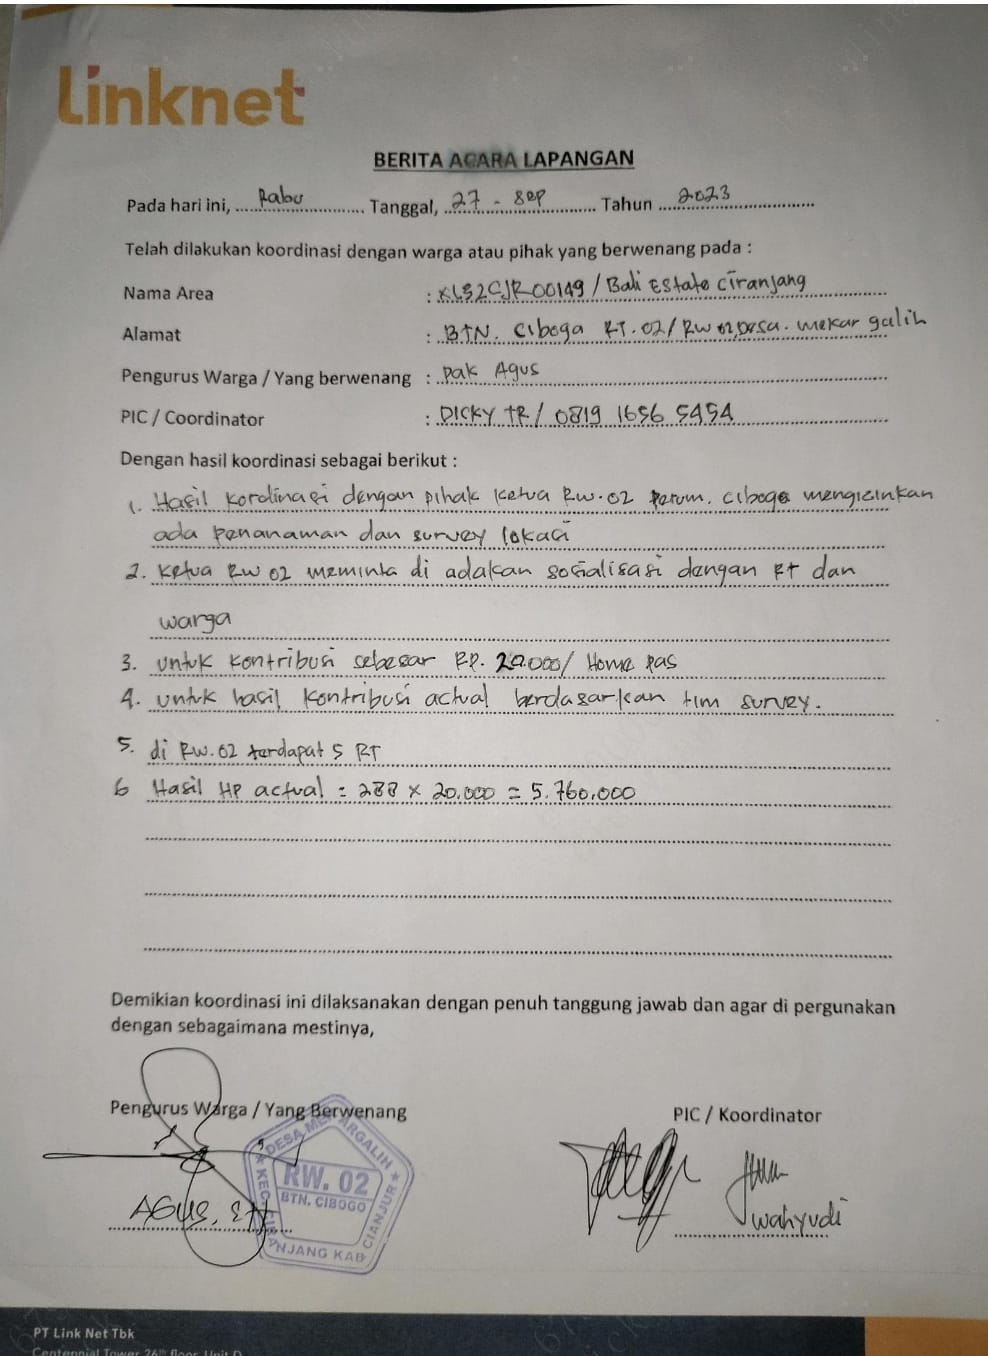 linknet
BERITA ACARA LAPANGAN
Pada hari ini, Rabu Tanggal, 27 - sep Tahun 2023
Telah dilakukan koordinasi dengan warga atau pihak yang berwenang pada :
Nama Area : KLS2CJR00149 / Bali Estate Ciranjang
Alamat : BTN. Ciboga RT. 02/ RW 02, Desa. Mekar galih
Pengurus Warga / Yang berwenang : Pak Agus
PIC / Coordinator : DICKY TR / 0819 1656 5454
Dengan hasil koordinasi sebagai berikut :
1. Hasil Kordinasi dengan pihak Ketua RW.02 Perum. Ciboga mengizinkan
ada penanaman dan survey lokasi
2. Ketua RW 02 meminta di adakan sosialisasi dengan RT dan
warga
3. untuk kontribusi sebesar RP. 20.000/ Home pas
4. untuk hasil kontribusi actual berdasarkan tim survey.
5. di RW.02 terdapat 5 RT
6 Hasil HP actual = 288 x 20.000 = 5.760.000
Demikian koordinasi ini dilaksanakan dengan penuh tanggung jawab dan agar di pergunakan
dengan sebagaimana mestinya,
Pengurus Warga / Yang Berwenang PIC / Koordinator
DESA MEKARGALIH
RW. 02
BTN. CIBOGO
KEC. CIRANJANG KAB CIANJUR
AGUS. wahyudi
PT Link Net Tbk
Centennial Tower 26th floor, Unit D